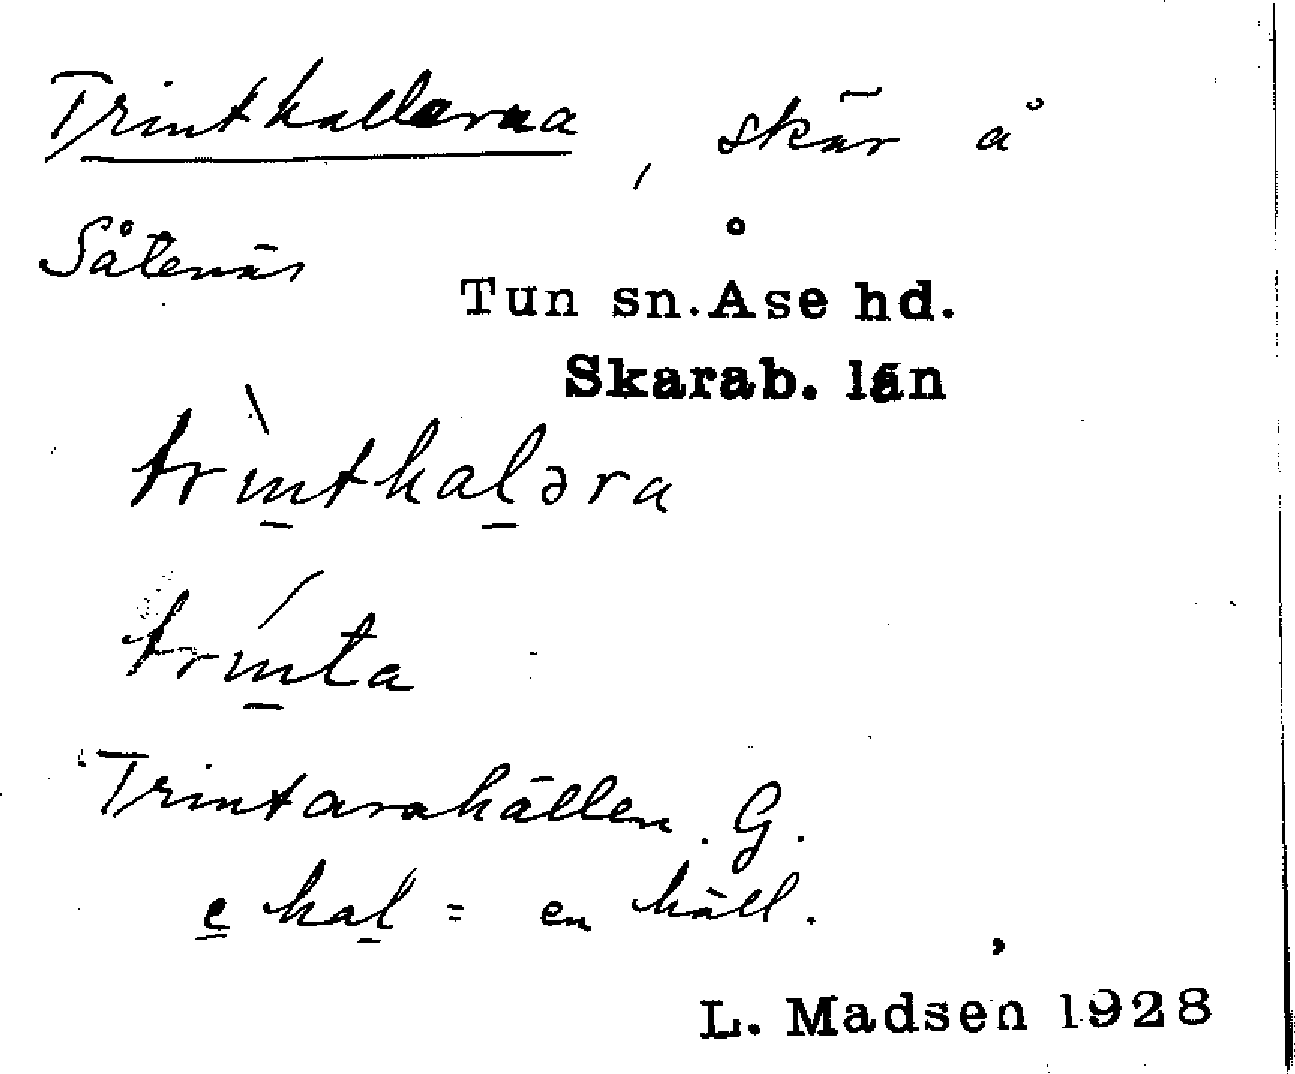 Trinthallarna, skär å
Såtenäs
Tun sn. Åse hd.
Skarab. län
trìnthaləra
trínta
Trintarahällen. G.
e hal = en häll.
L. Madsen 1928